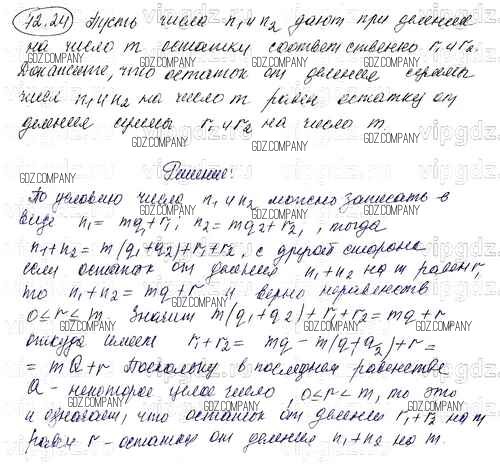 12.24 Пусть числа n₁ и n₂ дают при делении
на число m остатки соответственно r₁ и r₂.
Докажите, что остаток от деления суммы
чисел n₁ и n₂ на число m равен остатку от
деления суммы r₁ и r₂ на число m
Решение:
По условию числа n₁ и n₂ можно записать в
виде n₁ = mq₁ + r₁; n₂ = mq₂ + r₂, ; тогда
n₁ + n₂ = m(q₁ + q₂) + r₁ + r₂, с другой стороны
если остаток от деления n₁ + n₂ на m равен r,
то n₁ + n₂ = mq + r и верно неравенство
0 ≤ r < m. Значит m(q₁ + q₂) + r₁ + r₂ = mq + r
откуда имеем r₁ + r₂ = mq - m(q + q₂) + r =
= mQ + r Поскольку в последнем равенстве
Q - некоторое целое число, 0 ≤ r < m, то это
и означает, что остаток от деления r₁ + r₂ на m
равен r - остатку от деления n₁ + n₂ на m.
GDZ.COMPANY
vipgdz.ru